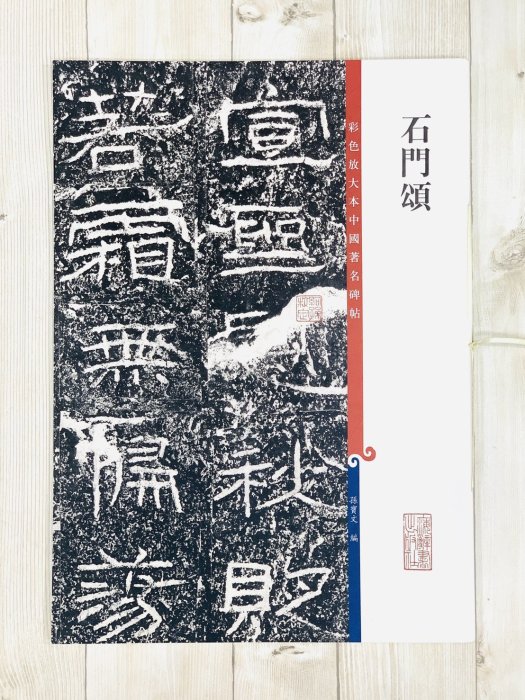 石門頌
彩色放大本中國著名碑帖
孫寶文 編
宣聖恩秋貶
若霜無偏蕩